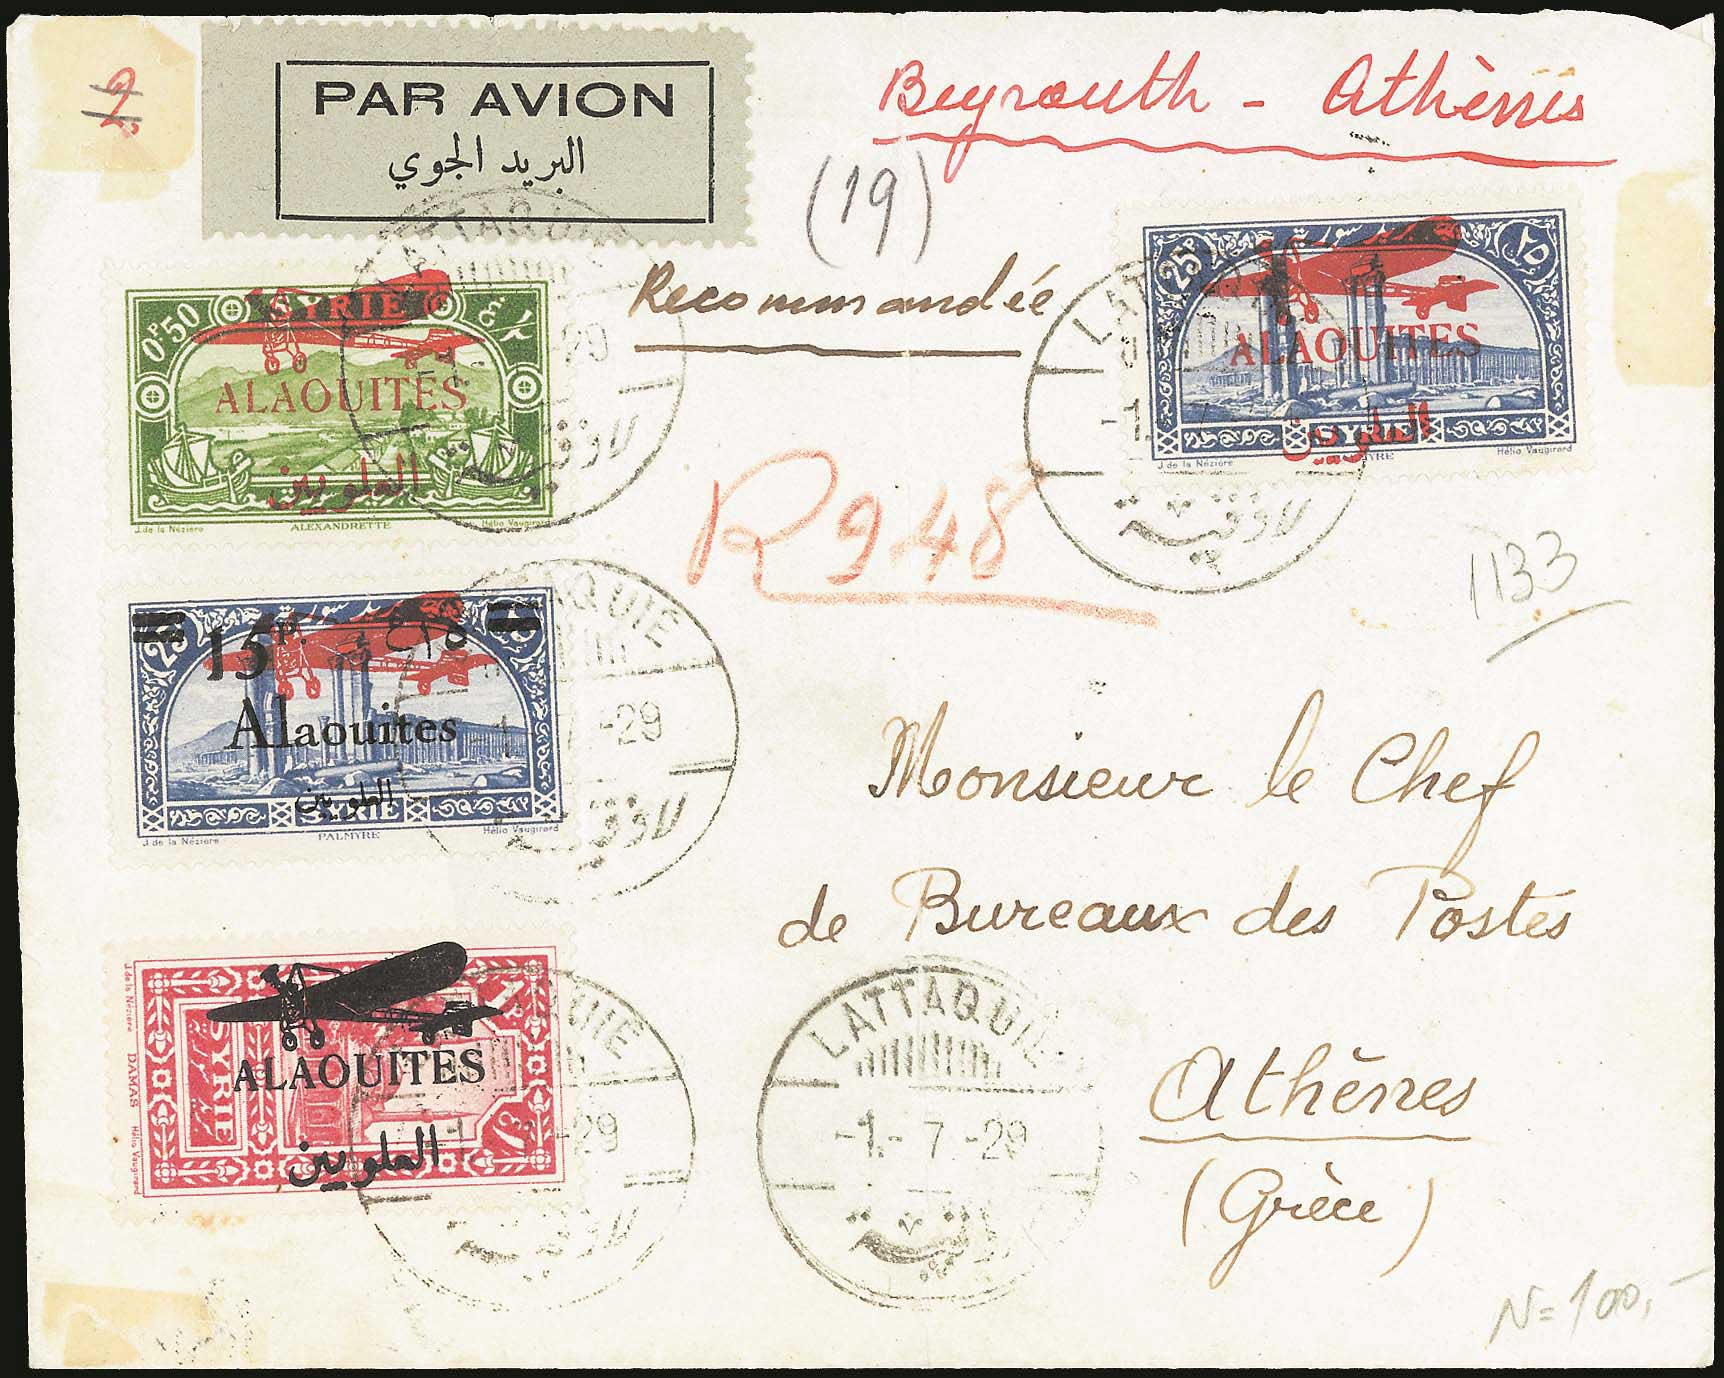 PAR AVION
البريد الجوي
Beyrouth - Athènes
(19)
Recommandée
R 948
1133
Monsieur le Chef
de Bureaux des Postes
Athènes
(Grèce)
N=100,-
0P50
SYRIE
ALAOUITES
العلويين
J. de la Nézière
ALEXANDRETTE
Hélio Vaugirard
25P
ALAOUITES
العلويين
SYRIE
J. de la Nézière
Hélio Vaugirard
15P.
Alaouites
العلويين
SYRIE
J. de la Nézière
PALMYRE
Hélio Vaugirard
SYRIE
ALAOUITES
العلويين
J. de la Nézière
DAMAS
Hélio Vaugirard
LATTAQUIE
-1.-7.-29
لاذقية